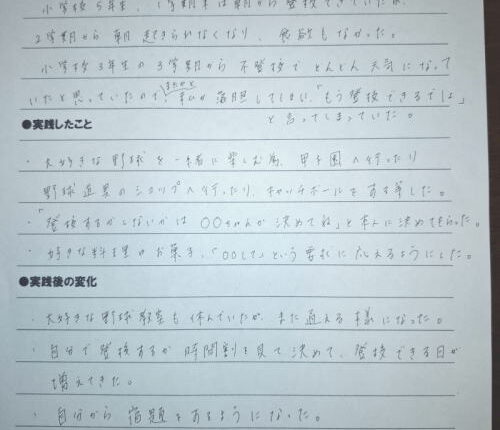 小学校5年生、1学期末は朝から登校できていたが、
2学期から朝起きられなくなり、食欲もなかった。
小学校3年生の3学期から不登校でどんどん元気になって
いたと思っていたので、またかと私が落胆してしまい、「もう登校できるでしょ」
と言ってしまっていた。
●実践したこと
・大好きな野球を一緒に楽しむ為、甲子園へ行ったり
野球道具のショップへ行ったり、キャッチボールをする等した。
・「登校するかしないかは〇〇ちゃんが決めてね」と本人に決めてもらった。
・好きな料理やお菓子、「〇〇して」という要求に応えるようにした。
●実践後の変化
・大好きな野球教室も休んでいたが、また通える様になった。
・自分で登校するか時間割を見て決めて、登校できる日が
増えてきた。
・自分から宿題をするようになった。